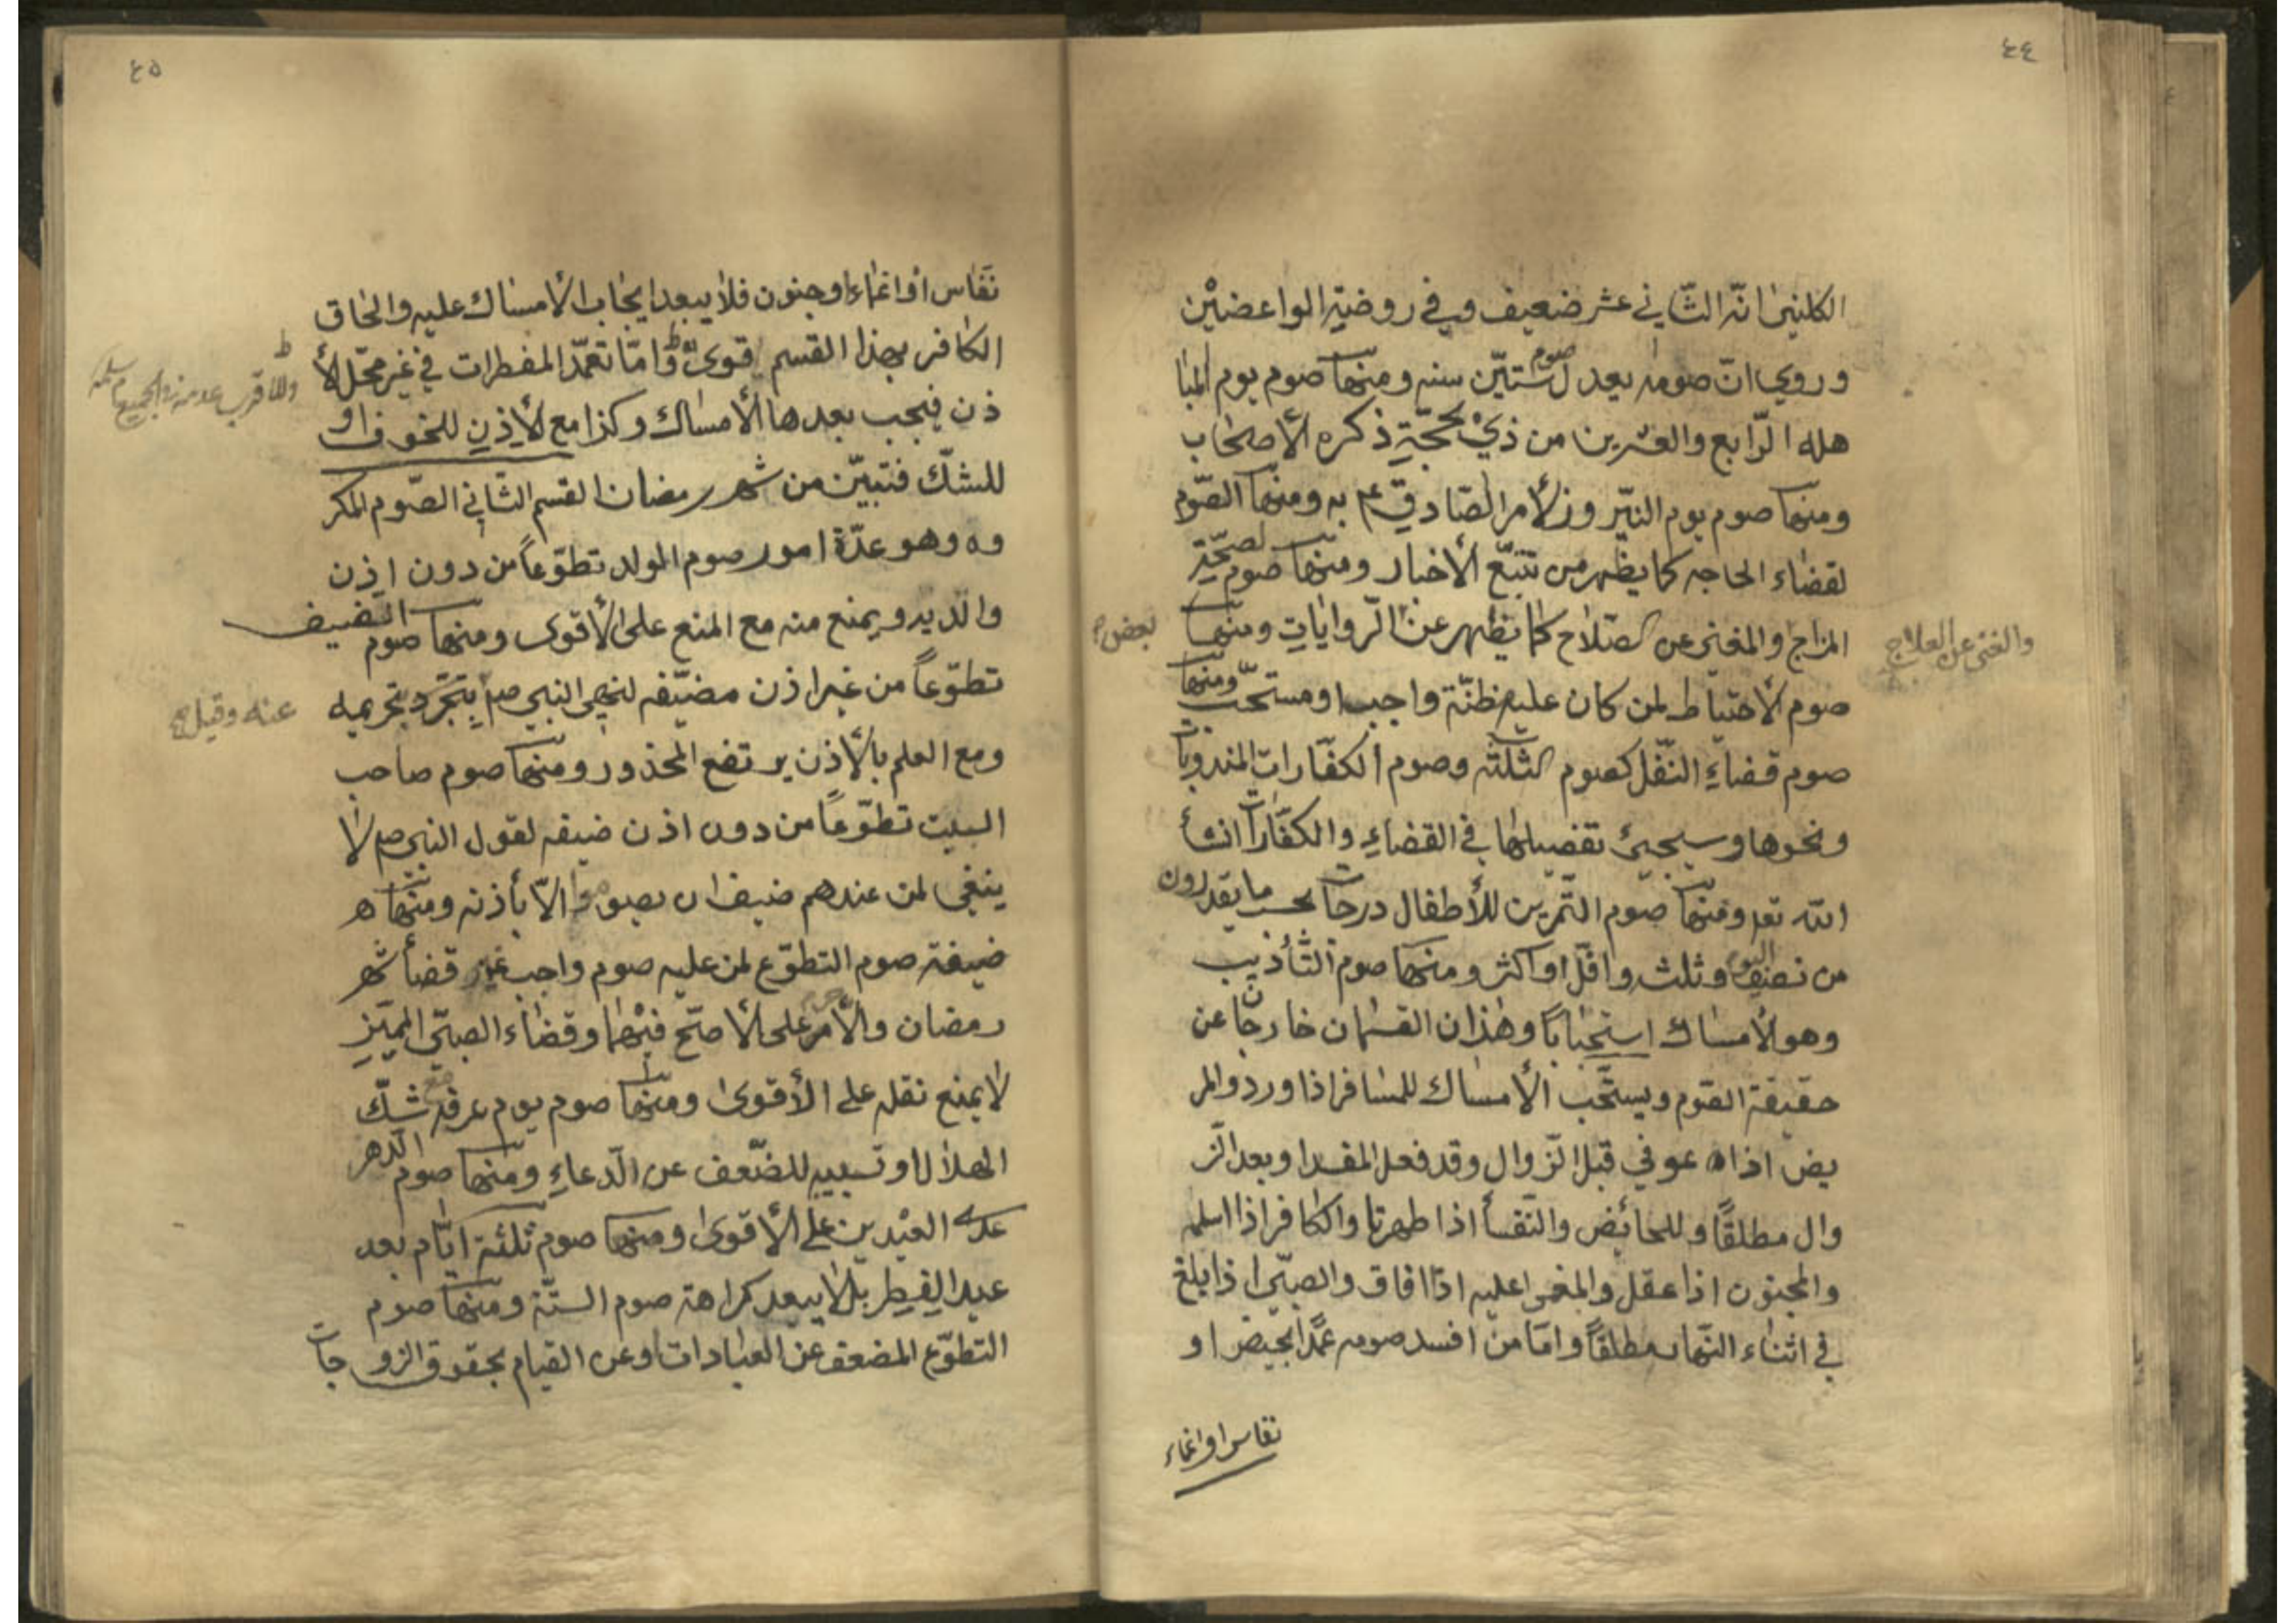 ٤٤
الكليني انّه الثّاني عشر ضعيف وفي روضة الواعضين
وروي انّ صومه يعدل صوم ستّين سنه ومنها صوم يوم المبا
هله الرّابع والعشرين من ذي حجّة ذكره الأصحاب
ومنها صوم يوم النيّروز لأمر الصّادق ع به ومنها الصّوم
لقضاء الحاجه كما يظهر من تتبّع الأخبار ومنها صوم لصحّة
المزاج والمغني عن الصلاح كما يظهر عن الرّوايات ومنها
والغنى عن العلاج
بعض
صوم الأحتياط لمن كان عليه مظنّة واجب او مستحبّ ومنها
صوم قضاء النّفل كصوم الثلثة وصوم الكفّارات المندوبات
ونحوها وسيجيئ تفصيلها في القضاء والكفّارات انشأ
الله تع ومنها صوم التّمرين للأطفال درجات بحسب ما يقدرون
من نصف اليوم وثلث واقلّ او اكثر ومنها صوم التّأذيب
وهو الأمساك استحباباً وهذان القسمان خارجان عن
حقيقة الصّوم ويستحّب الأمساك للمسافر اذا ورد والمر
يض اذا عوفي قبل الزّوال وقد فعل المفسد او بعد الزّ
وال مطلقاً وللحائض والنّفسأ اذا طهرتا والكافر اذا اسلم
والمجنون اذا عقل والمغمى عليه اذا افاق والصبّي اذا بلغ
في اثناء النّهار مطلقاً وامّا من افسد صومه عمداً بحيض او
نفاس او اغماء
٤٥
نفاس او اغماء او جنون فلا يبعد ايجاب الأمساك عليه والحاق
الكافر بهذا القسم قوى وامّا تعمّد المفطرات في غير محّل الأ
ذن فيجب بعدها الأمساك وكذا مع الأذن للخوف او
للشكّ فتبيّن من شهر رمضان القسم الثّاني الصّوم المكر
وه وهو عدّة امور صوم المولد تطوّعاً من دون اذن
والديه ويمنع منه مع المنع على الأقوى ومنها صوم الضيف
تطوّعاً من غير اذن مضيّفه لنهى النبي ص بتجرّد تحريمه
عنه وقيل
ومع العلم بالأذن يرتفع المحذور ومنها صوم صاحب
البيت تطوّعاً من دون اذن ضيفه لقول النبي ص لا
ينبغي لمن عندهم ضيف ان يصوموا الاّ بأذنه ومنها ه
ضيفة صوم التطوّع لمن عليه صوم واجب غير قضأ شهر
رمضان والأمر على الأصّح فيهما وقضاء الصبّي المميّز
لا يمنع نفله على الأقوى ومنها صوم يوم عرفه مع شكّ
الهلال او تسبيبه للضّعف عن الدّعاء ومنها صوم الدّهر
عدى العيدين على الأقوى ومنها صوم ثلثة ايّام بعد
عيد الفطر بل لا يبعد كراهة صوم الستّة ومنها صوم
التطوّع المضعف عن العبادات او عن القيام بحقوق الزوجات